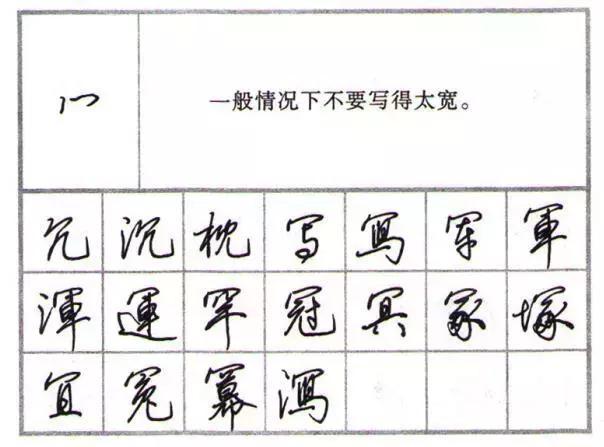 冖 一般情况下不要写得太宽。
冗 沉 枕 写 寫 军 軍
渾 運 罕 冠 冥 冢 塚
冝 冤 冪 瀉